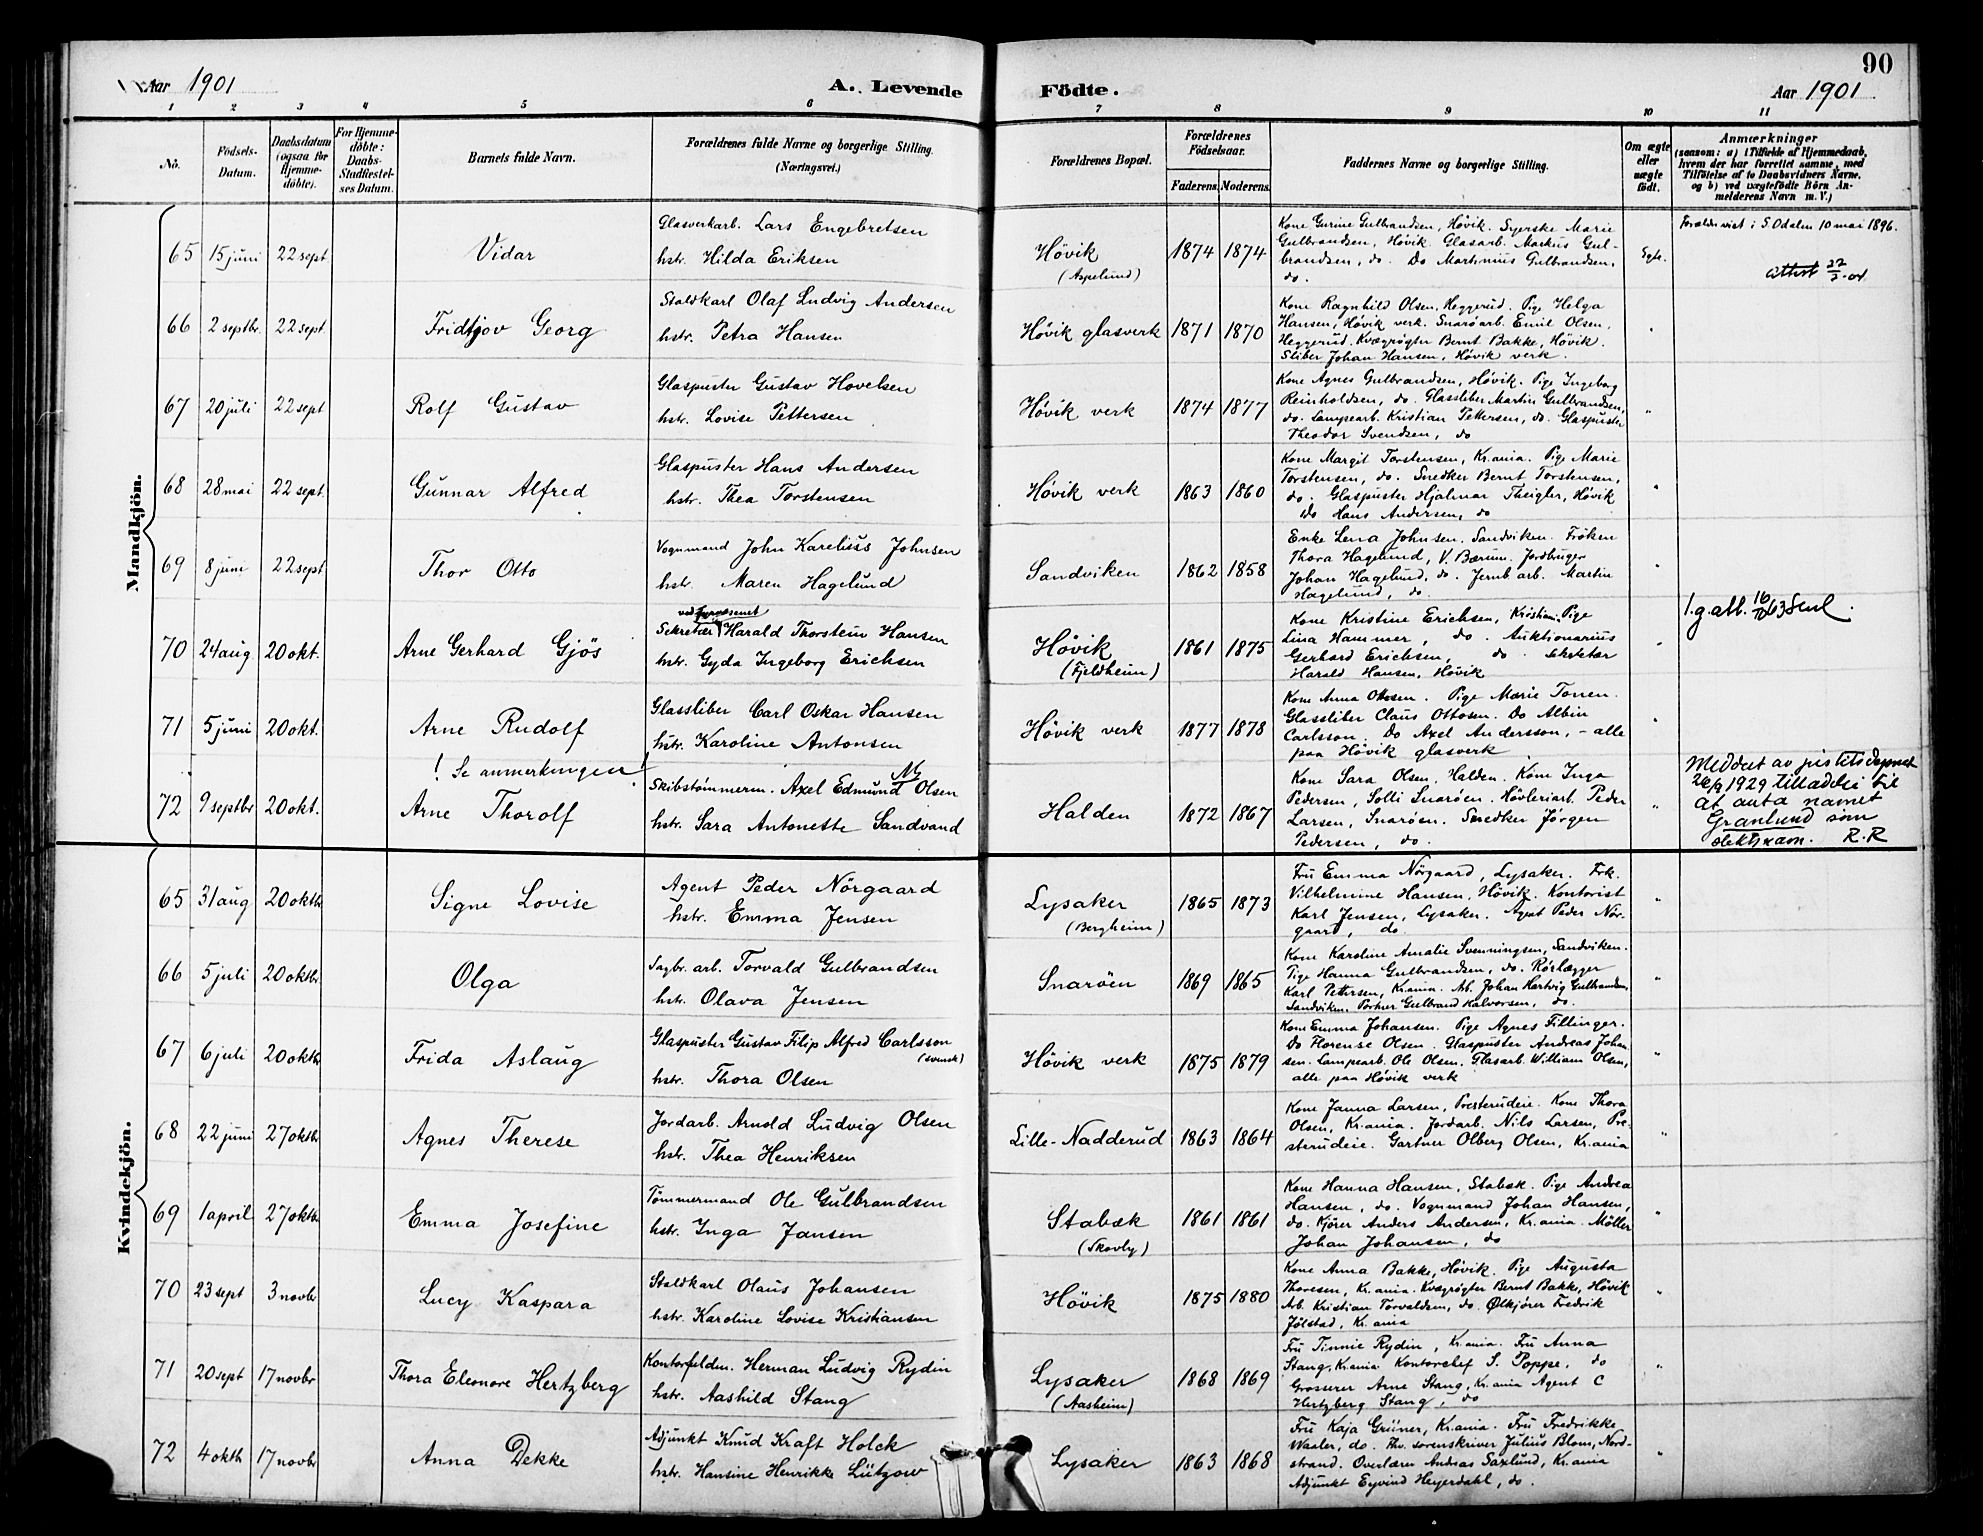 Aar 1901
A. Levende
Födte.
Aar 1901
90
1 2 3 4 5 6 7 8 9 10 11
No.
Födsels-Datum.
Daabsdatum (ogsaa for Hjemme-döbte).
For Hjemme-döbte: Daabs-Stadfæstel-ses Datum.
Barnets fulde Navn.
Forældrenes fulde Navne og borgerlige Stilling.
(Næringsvei.)
Forældrenes Bopæl.
Forældrenes Födselsaar.
Faderens. Moderens.
Faddernes Navne og borgerlige Stilling.
Om ægte eller uægte födt.
Anmærkninger
(saasom: a) i Tilfælde af Hjemmedaab,
hvem der har forrettet samme, med
Tilföielse af to Daabsvidners Navne,
og b) ved uægtefödte Börn An-
melderens Navn m. V.)
Mandkjön.
65 15 juni 22 sept Vidar
Glasverkarb. Lars Engebretsen
hstr. Hilda Eriksen
Høvik
(Aspelund)
1874 1874
Kone Gurine Gulbrandsen, Høvik. Syerske Marie
Gulbrandsen, Høvik. Glasarb. Markus Gul-
brandsen, do. Do Martinius Gulbrandsen,
do.
Egte.
Forældre viet i S. Odalen 10 mai 1896.
attest 27/3-01
66 2 septbr. 22 sept. Fridtjov Georg
Staldkarl Olaf Ludvig Andersen
hstr. Petra Hansen
Høvik glasverk
1871 1870
Kone Ragnhild Olsen, Heggerud. Pige Helga
Hansen, Høvik verk. Snarøarb. Emil Olsen,
Heggerud. Kvægrøgter Bernt Bakke, Høvik.
Sliber Johan Hansen, Høvik verk.
"
67 20 juli 22 sept Rolf Gustav
Glaspuster Gustav Hovelsen
hstr. Lovise Pettersen
Høvik verk
1874 1877
Kone Agnes Gulbrandsen, Høvik. Pige Ingeborg
Reinholdsen, do. Glassliber Martin Gulbrandsen,
do. Lampearb. Kristian Pettersen, do. Glaspuster
Theodor Svendsen, do
"
68 28 mai 22 sept. Gunnar Alfred
Glaspuster Hans Andersen
hstr. Thea Torstensen
Høvik verk
1863 1860
Kone Margit Torstensen, Kr.ania. Pige Marie
Torstensen, do. Snedker Bernt Torstensen,
do. Glaspuster Hjalmar Theigler, Høvik
Do Hans Andersen, do
"
69 8 juni 22 sept Thor Otto
Vognmand John Karelius Johnsen
hstr. Maren Hagelund
Sandviken
1862 1858
Enke Lena Johnsen, Sandviken. Frøken
Thora Hagelund, V. Bærum. Jordbruger
Johan Hagelund, do. Jernb.arb. Martin
Hagelund, do.
"
70 24 aug. 20 okt. Arne Gerhard Gjös
Sekretær ved Harald Thorstein Hansen
hstr. Gyda Ingeborg Erichsen
Høvik
(Fjeldheim)
1861 1875
Kone Kristine Erichsen, Kristian. Pige
Lina Hammer, do. Auktionarius
Gerhard Erichsen, do. Sekretær
Harald Hansen, Høvik
"
1.g.att.
71 5 juni 20 okt. Arne Rudolf
Glassliber Carl Oskar Hansen
hstr. Karoline Antonsen
Høvik verk
1877 1878
Kone Anna Ottosen. Pige Marie Tonen.
Glassliber Claus Ottosen. Do Albin
Carlsson. Do Axel Andersson, - alle
paa Høvik glasverk
"
! Se anmerkningen !
72 9 septbr 20 okt. Arne Thorolf
Skibstømmerm. Axel Edmund Olsen
hstr. Sara Antonette Sandvand
Halden
1872 1867
Kone Sara Olsen, Halden. Kone Inga
Pedersen, Solli Snarøen. Høvleriarb. Peder
Larsen, Snarøen. Snedker Jørgen
Pedersen, do.
"
Meddelt av justitsdepmet
26/9 1929 tilladelse til
at anta namet
Granlund som
slektsnavn. R.R
Kvindekjön.
65 31 aug 20 oktbr Signe Lovise
Agent Peder Nörgaard
hstr. Emma Jensen
Lysaker
(Bergheim)
1865 1873
Fru Emma Nörgaard, Lysaker. Frk.
Vilhelmine Hansen, Høvik. Kontorist
Karl Jensen, Lysaker. Agent Peder Nör-
gaard, do.
"
66 5 juli 20 oktbr Olga
Sagbr. arb. Torvald Gulbrandsen
hstr. Olava Jensen
Snarøen
1869 1865
Kone Karoline Amalie Svenningsen, Sandviken.
Pige Hanna Gulbrandsen, do. Rörlægger
Karl Pettersen, Kr.ania. Ab. Johan Hartvig Gulbrandsen,
Sandviken. Portner Gulbrand Halvorsen, do.
"
67 6 juli 20 oktbr Frida Aslaug
Glaspuster Gustav Filip Alfred Carlsson
(svensk)
hstr. Thora Olsen
Høvik verk
1875 1879
Kone Emma Johansen. Pige Agnes Fillinger.
Do Horense Olsen. Glaspuster Andreas Johan-
sen. Lampearb. Ole Olsen. Glasarb. William Olsen,
alle paa Høvik verk
"
68 22 juni 27 oktbr Agnes Therese
Jordarb. Arnold Ludvig Olsen
hstr. Thea Henriksen
Lille-Nadderud
1863 1864
Kone Janna Larsen, Presterudeie. Kone Thora
Olsen, Kr.ania. Jordarb. Nils Larsen, Pre-
sterudeie. Gartner Olberg Olsen, Kr.ania
"
69 1 april 27 oktbr Emma Josefine
Tømmermand Ole Gulbrandsen
hstr. Inga Jansen
Stabæk
(Skovly)
1861 1861
Kone Hanna Hansen, Stabæk. Pige Andrea
Hansen, do. Vognmand Johan Hansen,
do. Kjører Anders Andersen, Kr.ania. Möller
Johan Johansen, do
"
70 23 sept 3 novbr Lucy Kaspara
Staldkarl Olaus Johansen
hstr. Karoline Lovise Kristiansen
Høvik
1875 1880
Kone Anna Bakke, Høvik. Pige Augusta
Thoresen, Kr.ania. Kvægrøgter Bernt Bakke, Høvik
Arb. Kristian Torvaldsen, do. Ølkjører Fredrik
Jölstad, Kr.ania
"
71 20 sept 17 novbr Thora Eleonore Hertzberg
Kontorfuldm. Herman Ludvig Rydin
hstr. Aashild Stang
Lysaker
(Aasheim)
1868 1869
Fru Tinnie Rydin, Kr.ania. Fru Anna
Stang, Kr.ania. Kontorchef S. Poppe, do
Grosserer Arne Stang, Kr.ania Agent C
Hertzberg Stang, do
"
72 4 oktb 17 novbr Anna Dekke
Adjunkt Knud Kraft Holck
hstr. Hansine Henrikke Lützow
Lysaker
1863 1868
Fru Kaja Grüner, Kr.ania. Fru Fredrikke
Waaler, do. Fhv. sorenskriver Julius Blom, Nord-
strand. Overlærer Andreas Saxlund, Kr.ania
Adjunkt Eyvind Heyerdahl, do.
"